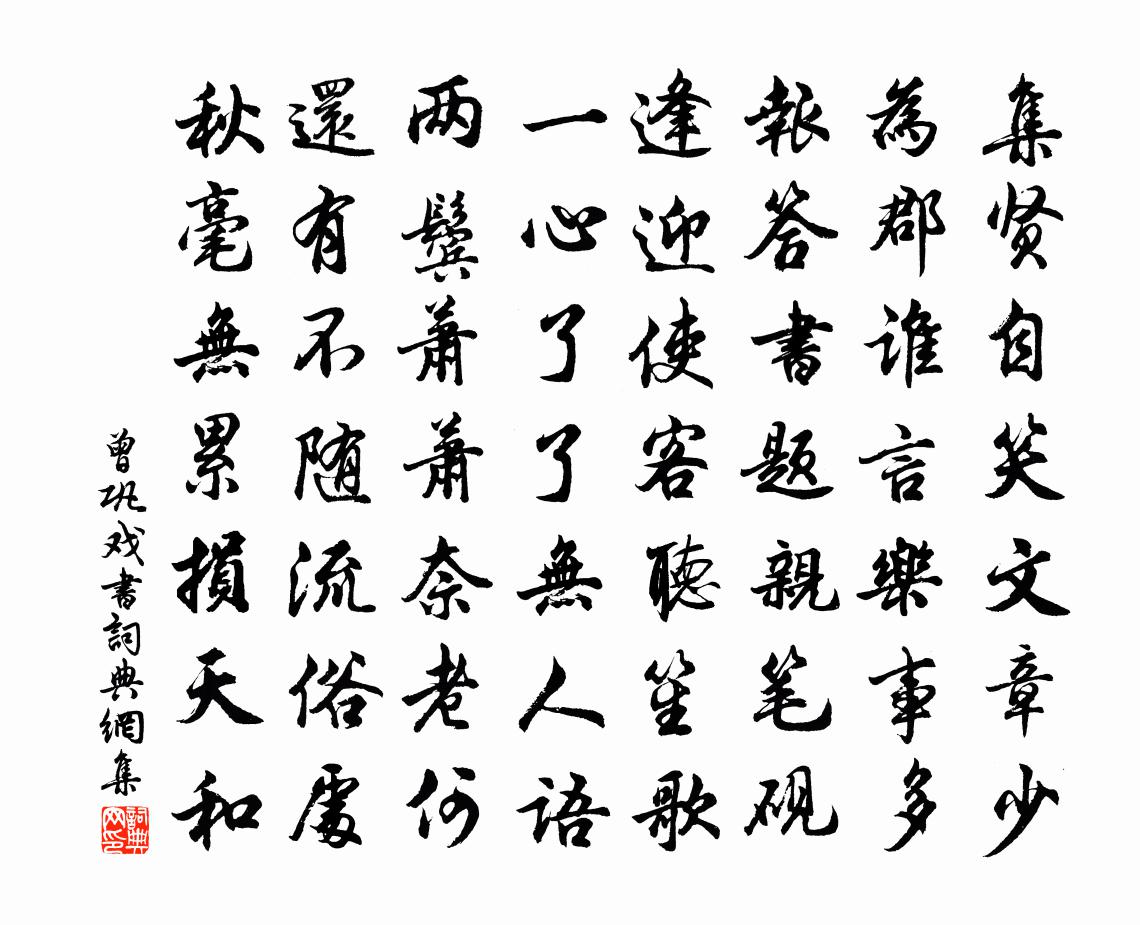 集贤自笑文章少
為郡谁言樂事多
報答書题親笔砚
逢迎使客聽笙歌
一心了了無人語
两鬓蕭蕭奈老何
還有不随流俗處
秋毫無累損天和
曾巩戏書詞典網集
詞典网印